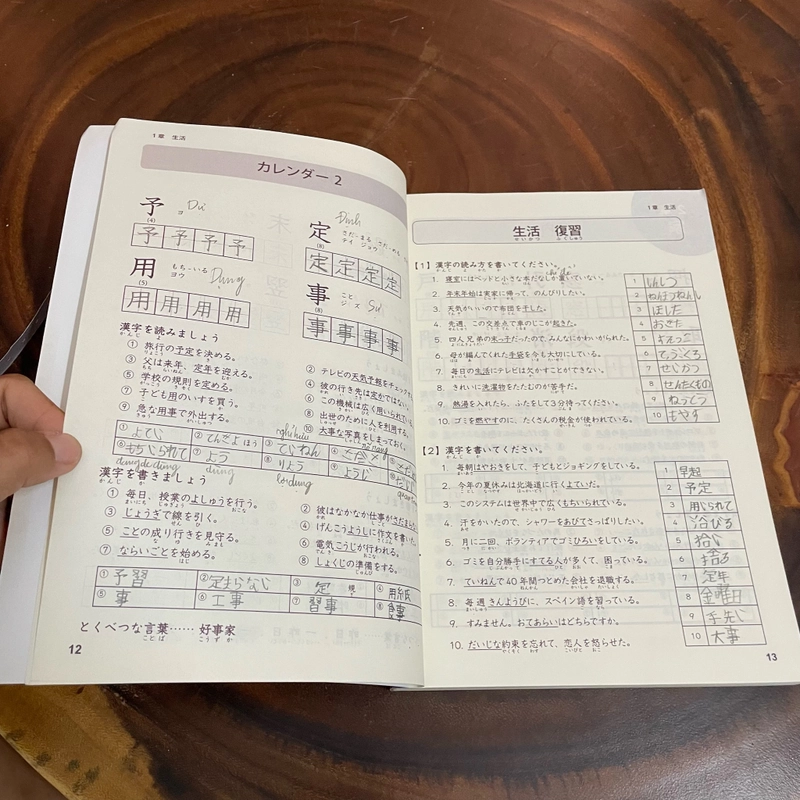 1章 生活
カレンダー 2
予 ヨ Dư
(4)
予 予 予 予
定 Định
さだ-まる さだ-める
テイ ジョウ
(8)
定 定 定 定
用 もち-いる ヨウ Dụng
(5)
用 用 用 用
事 こと ジ ズ Sự
(8)
事 事 事 事
漢字を読みましょう
① 旅行の予定を決める。
② テレビの天気予報をチェック
③ 父は来年、定年を迎える。
④ 彼の行き先は定かではない。
⑤ 学校の規則を定める。
⑥ この機械は広く用いられている
⑦ 子ども用のいすを買う。
⑧ 出世のために人を利用する。
⑨ 急な用事で外出する。
⑩ 大事な写真をしまっておく。
① よてい ② てんきよほう ③ ていねん
⑥ もちいられて ⑦ よう ⑧ りよう ⑨ ようじ
漢字を書きましょう
かんじ か
① 毎日、授業のよしゅうを行う。
② 彼はなかなか仕事がさだまらな
③ じょうぎで線を引く。
④ げんこうようしに作文を書
⑤ ことの成り行きを見守る。
⑥ 電気こうじが行われる。
⑦ ならいごとを始める。
⑧ しょくじの準備をする。
① 予習 ② 定まらない ③ 定規 ④ 用紙
⑤ 事 ⑥ 工事 ⑦ 習事 ⑧ 食事
とくべつな言葉…… 好事家
ことば こうずか
12
1章 生活
生活 復習
せいかつ ふくしゅう
【1】漢字の読み方を書いてください。
1. 寝室にはベッドと小さな本だなしか置いていない。
2. 年末年始は実家に帰って、のんびりしたい。
3. 天気がいいので布団を干した。
4. 先週、この交差点で車のじこが起きた。
5. 四人兄弟の末っ子だったので、みんなにかわいがられた。
6. 母が編んでくれた手袋を今も大切にしている。
7. 毎日の生活にテレビは欠かすことができない。
8. きれいに洗濯物をたたむのが苦手だ。
9. 熱湯を入れたら、ふたをして3分待ってください。
10. ゴミを燃やすのに、たくさんの税金が使われている。
1 しんしつ
2 ねんまつねんし
3 ほした
4 おきた
5 すえっこ
6 てぶくろ
7 せいかつ
8 せんたくもの
9 ねっとう
10 もやす
【2】漢字を書いてください。
1. 毎朝はやおきをして、子どもとジョギングをしている。
2. 今年の夏休みは北海道に行くよていだ。
3. このシステムは世界中で広くもちいられている。
4. 汗をかいたので、シャワーをあびてさっぱりしたい。
5. 月に二回、ボランティアでゴミひろいをしている。
6. ゴミを自分勝手にすてる人が多くて、困っている。
7. ていねんで40年間つとめた会社を退職する。
8. 毎週きんようびに、スペイン語を習っている。
9. すみません。おてあらいはどちらですか。
10. だいじな約束を忘れて、恋人を怒らせた。
1 早起
2 予定
3 用いられて
4 浴びる
5 拾い
6 捨る
7 定年
8 金曜日
9 手洗い
10 大事
13